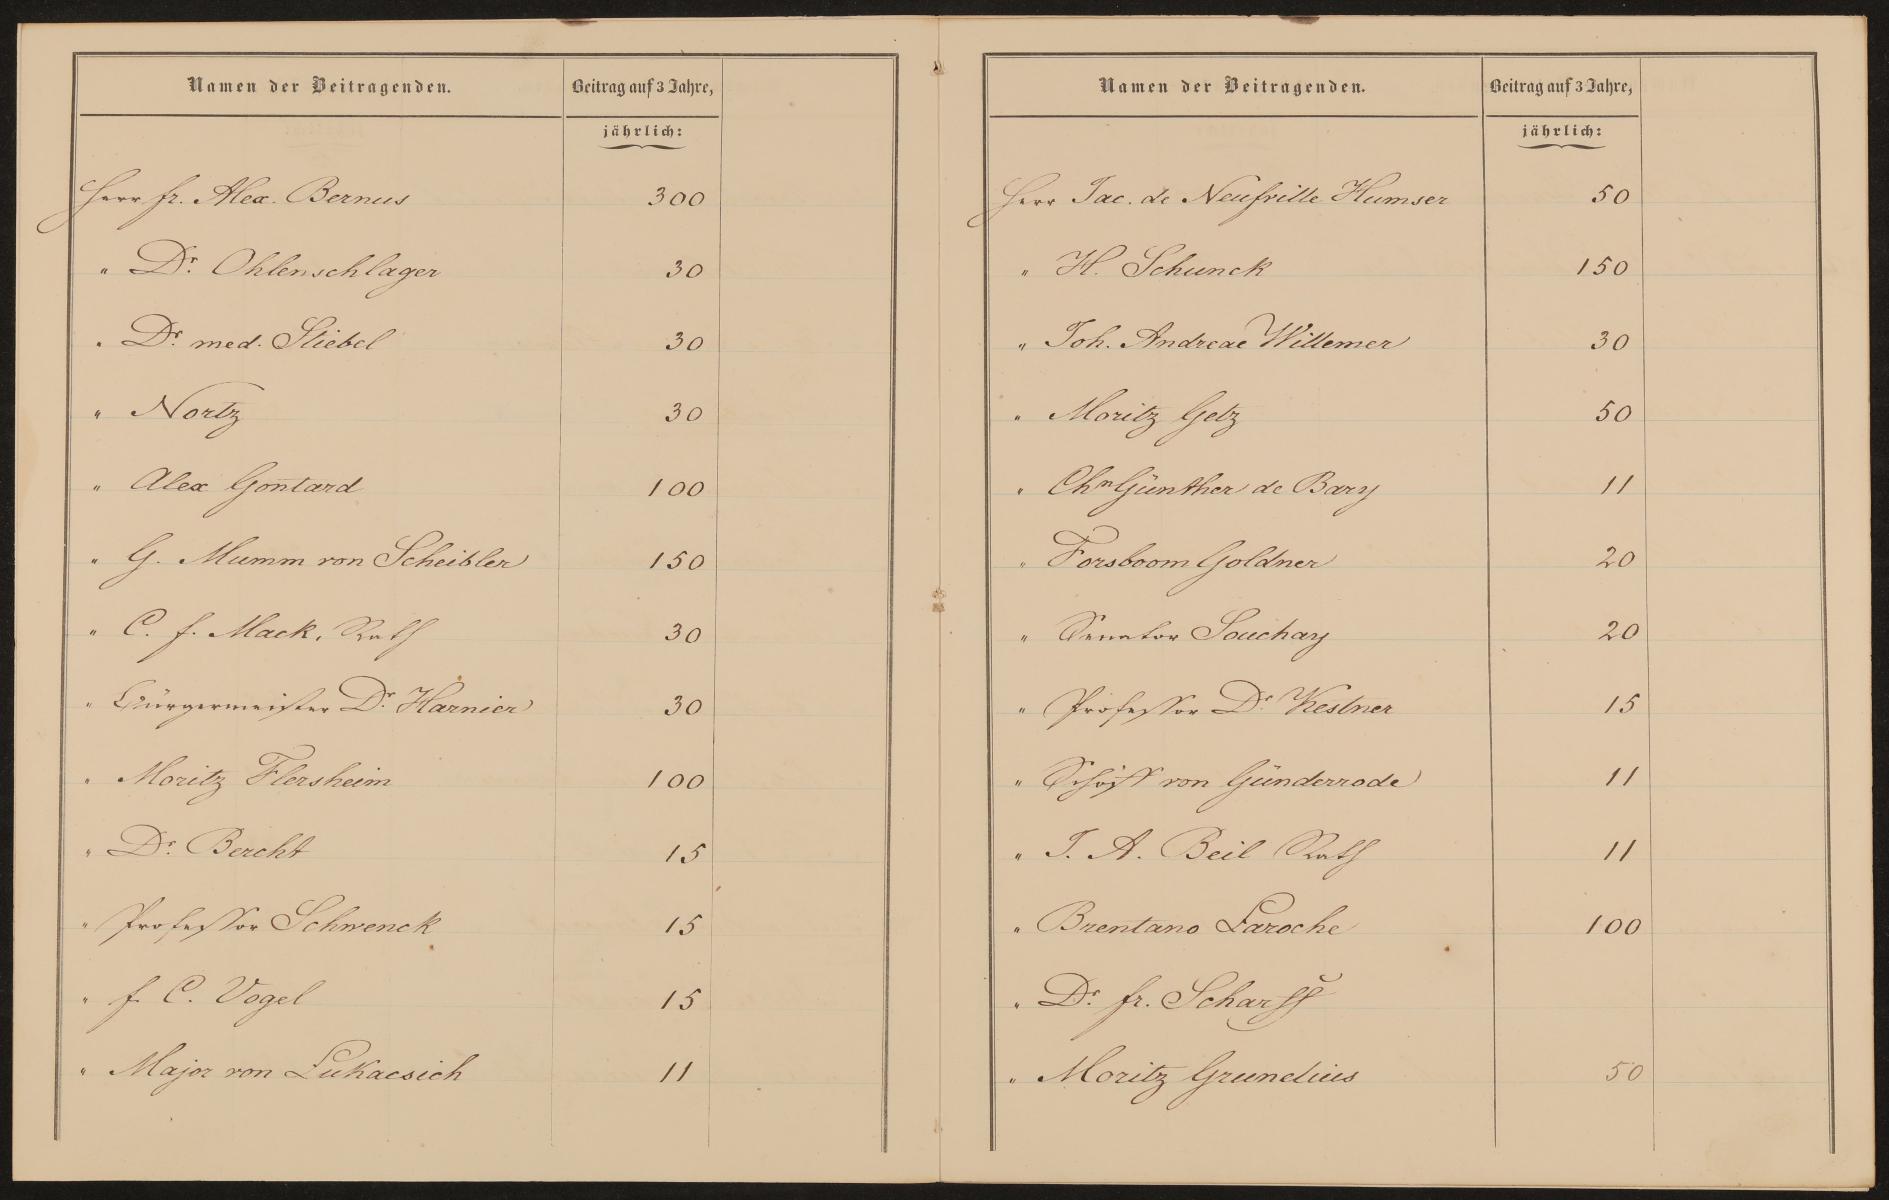 Namen der Beitragenden. Beitrag auf 3 Jahre,
jährlich:
Herr fr. Alex. Bernus 300
" Dr. Ohlenschlager 30
" Dr. med. Stiebel 30
" Nortz 30
" Alex Gontard 100
" G. Mumm von Scheibler 150
" C. f. Mack, Rath 30
" Bürgermeister Dr. Harnier 30
" Moritz Flersheim 100
" Dr. Bercht 15
" Professor Schwenck 15
" f. C. Vogel 15
" Major von Lukacsich 11
Namen der Beitragenden. Beitrag auf 3 Jahre,
jährlich:
Herr Jac. de Neufville Humser 50
" H. Schunck 150
" Joh. Andreae Willemer 30
" Moritz Getz 50
" Chn Günther de Bary 11
" Forsboom Goldner 20
" Senator Souchay 20
" Professor Dr. Kestner 15
" Schöff von Günderrode 11
" J. A. Beil Rath 11
" Brentano Laroche 100
" Dr. fr. Scharff
" Moritz Grunelius 50